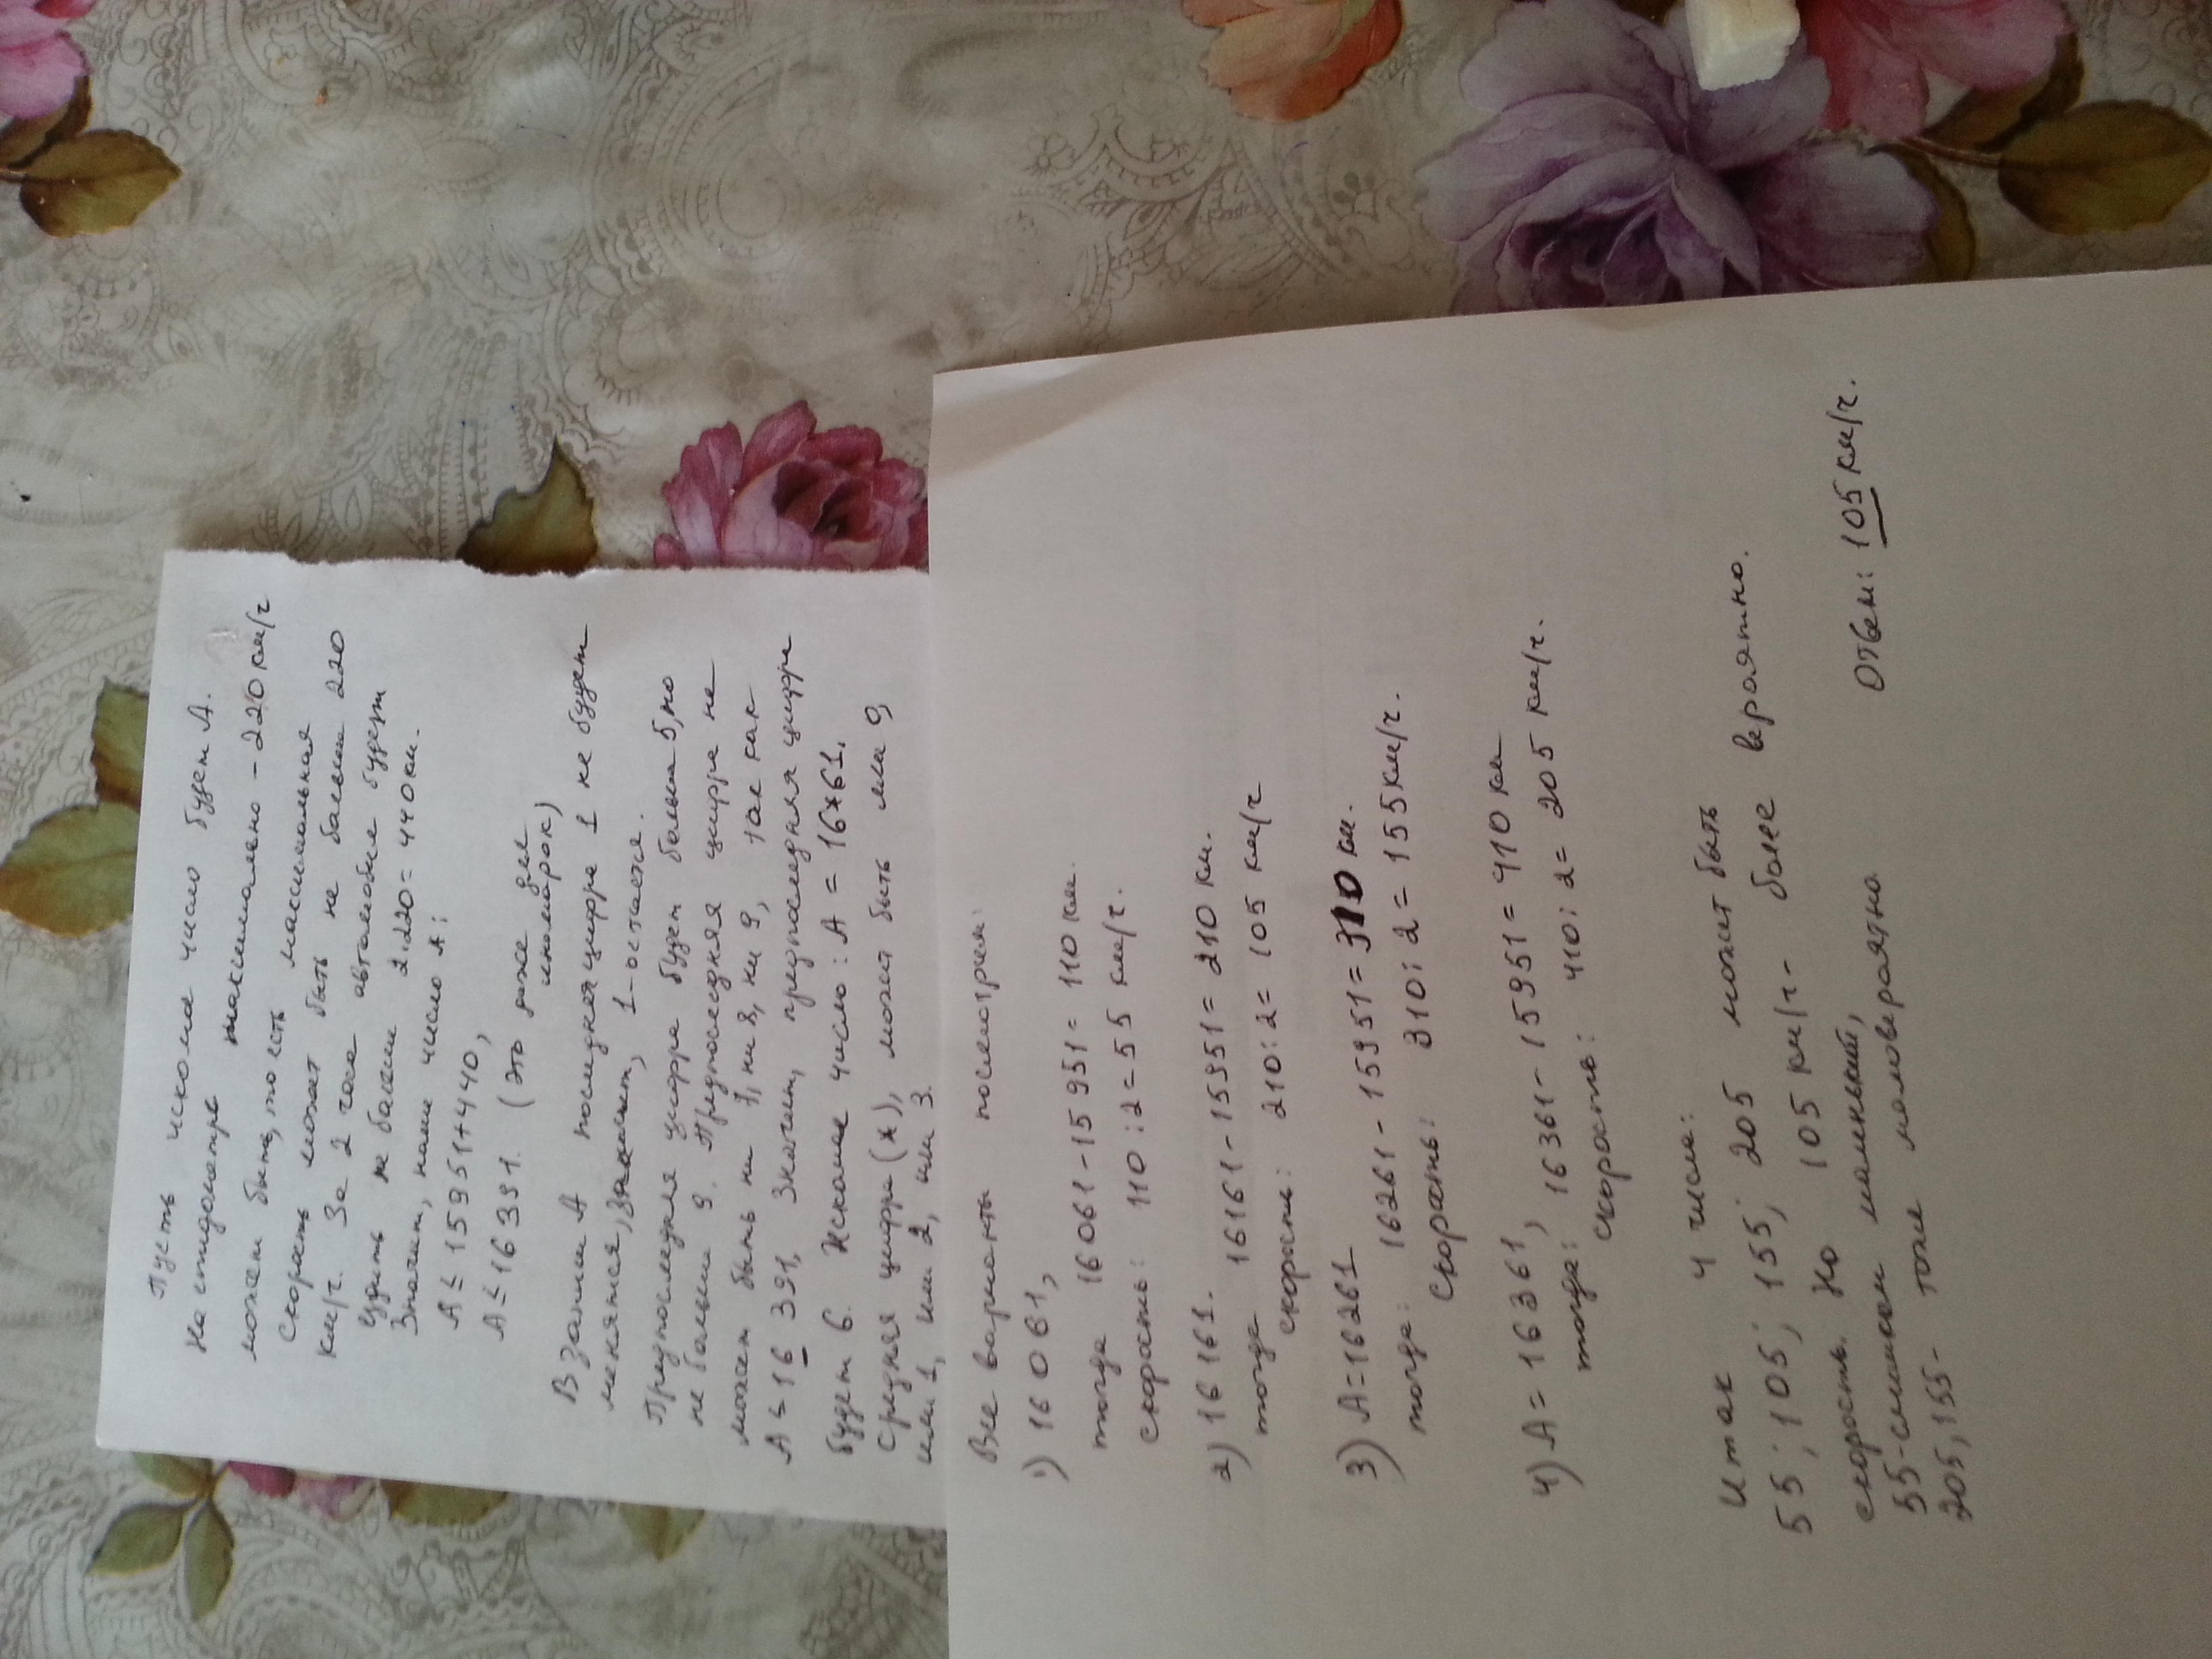 Пусть искомое число будет А.
На спидометре максимально - 220 км/ч
может быть, то есть максимальная
скорость может быть не больше 220
км/ч. За 2 часа автомобиль будет
не больше 2·220 = 440 км.
Значит, наше число А:
А ≤ 15951+440,
А ≤ 16391. (это даже для
иномарок)
В записи А последняя цифра 1 не будет
меняться, значит, 1-остаётся.
Предпоследняя цифра будет больше 5, но
не больше 9. Предпоследняя цифра не
может быть ни 7, ни 8, ни 9, так как
А ≤ 16 391, Значит, предпоследняя цифра
будет 6. Искомое число: А = 16*61,
Средняя цифра (*), может быть или 0,
или 1, или 2, или 3.
Все варианты посмотрим:
1) 16061,
тогда 16061-15951= 110 км.
скорость: 110:2=55 км/ч.
2) 16161.
тогда 16161-15951= 210 км.
скорость: 210:2= 105 км/ч
3) А=16261
тогда: 16261-15951= 310 км.
скорость: 310:2=155 км/ч.
4) А= 16361,
тогда: 16361-15951= 410 км
скорость: 410:2= 205 км/ч.
Итак 4 числа:
55; 105; 155; 205 может быть
скорость. Но 105 км/ч- более вероятно.
55-слишком маленький,
205, 155- тоже маловероятно.
Ответ: 105 км/ч.